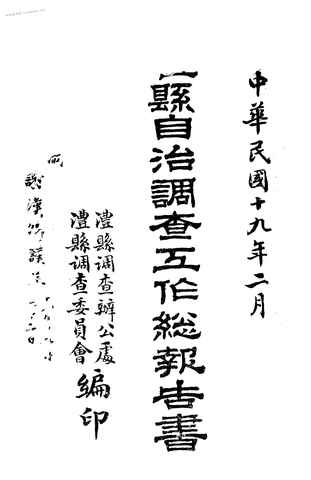 中華民國十九年二月
縣自治調查工作總報告書
澧縣調查辦公處
澧縣調查委員會
編印